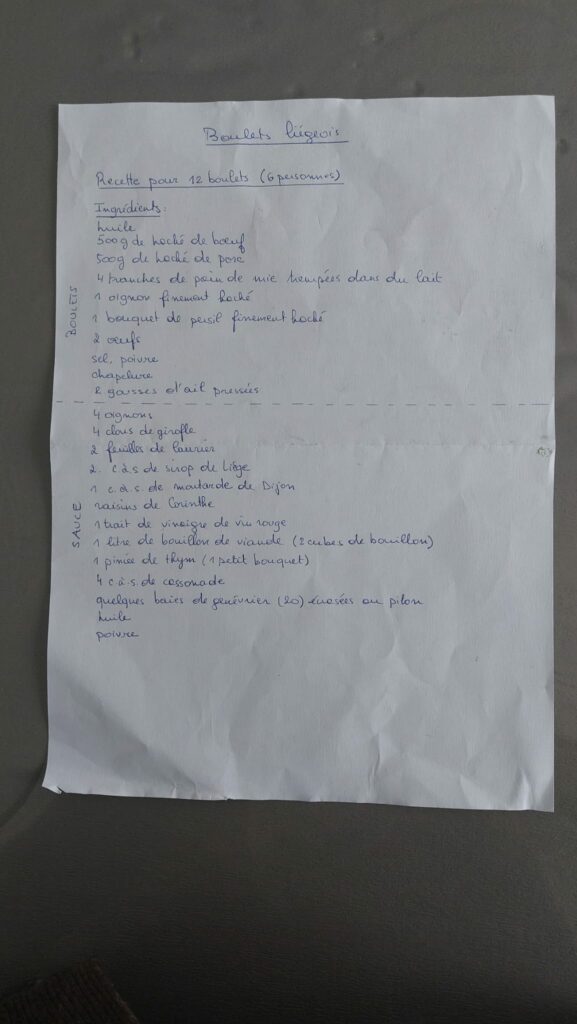 Boulets liégeois
Recette pour 12 boulets (6 personnes)
Ingrédients:
huile
500g de haché de bœuf
500g de haché de porc
4 tranches de pain de mie trempées dans du lait
1 oignon finement haché
1 bouquet de persil finement haché
2 œufs
sel, poivre
chapelure
2 gousses d'ail pressées
BOULETS
4 oignons
4 clous de girofle
2 feuilles de laurier
2 c à s de sirop de Liège
1 c. à s. de moutarde de Dijon
raisins de Corinthe
1 trait de vinaigre de vin rouge
1 litre de bouillon de viande (2 cubes de bouillon)
1 pincée de thym (1 petit bouquet)
4 c à s. de cassonade
quelques baies de genévrier (20) écrasées au pilon
huile
poivre
SAUCE